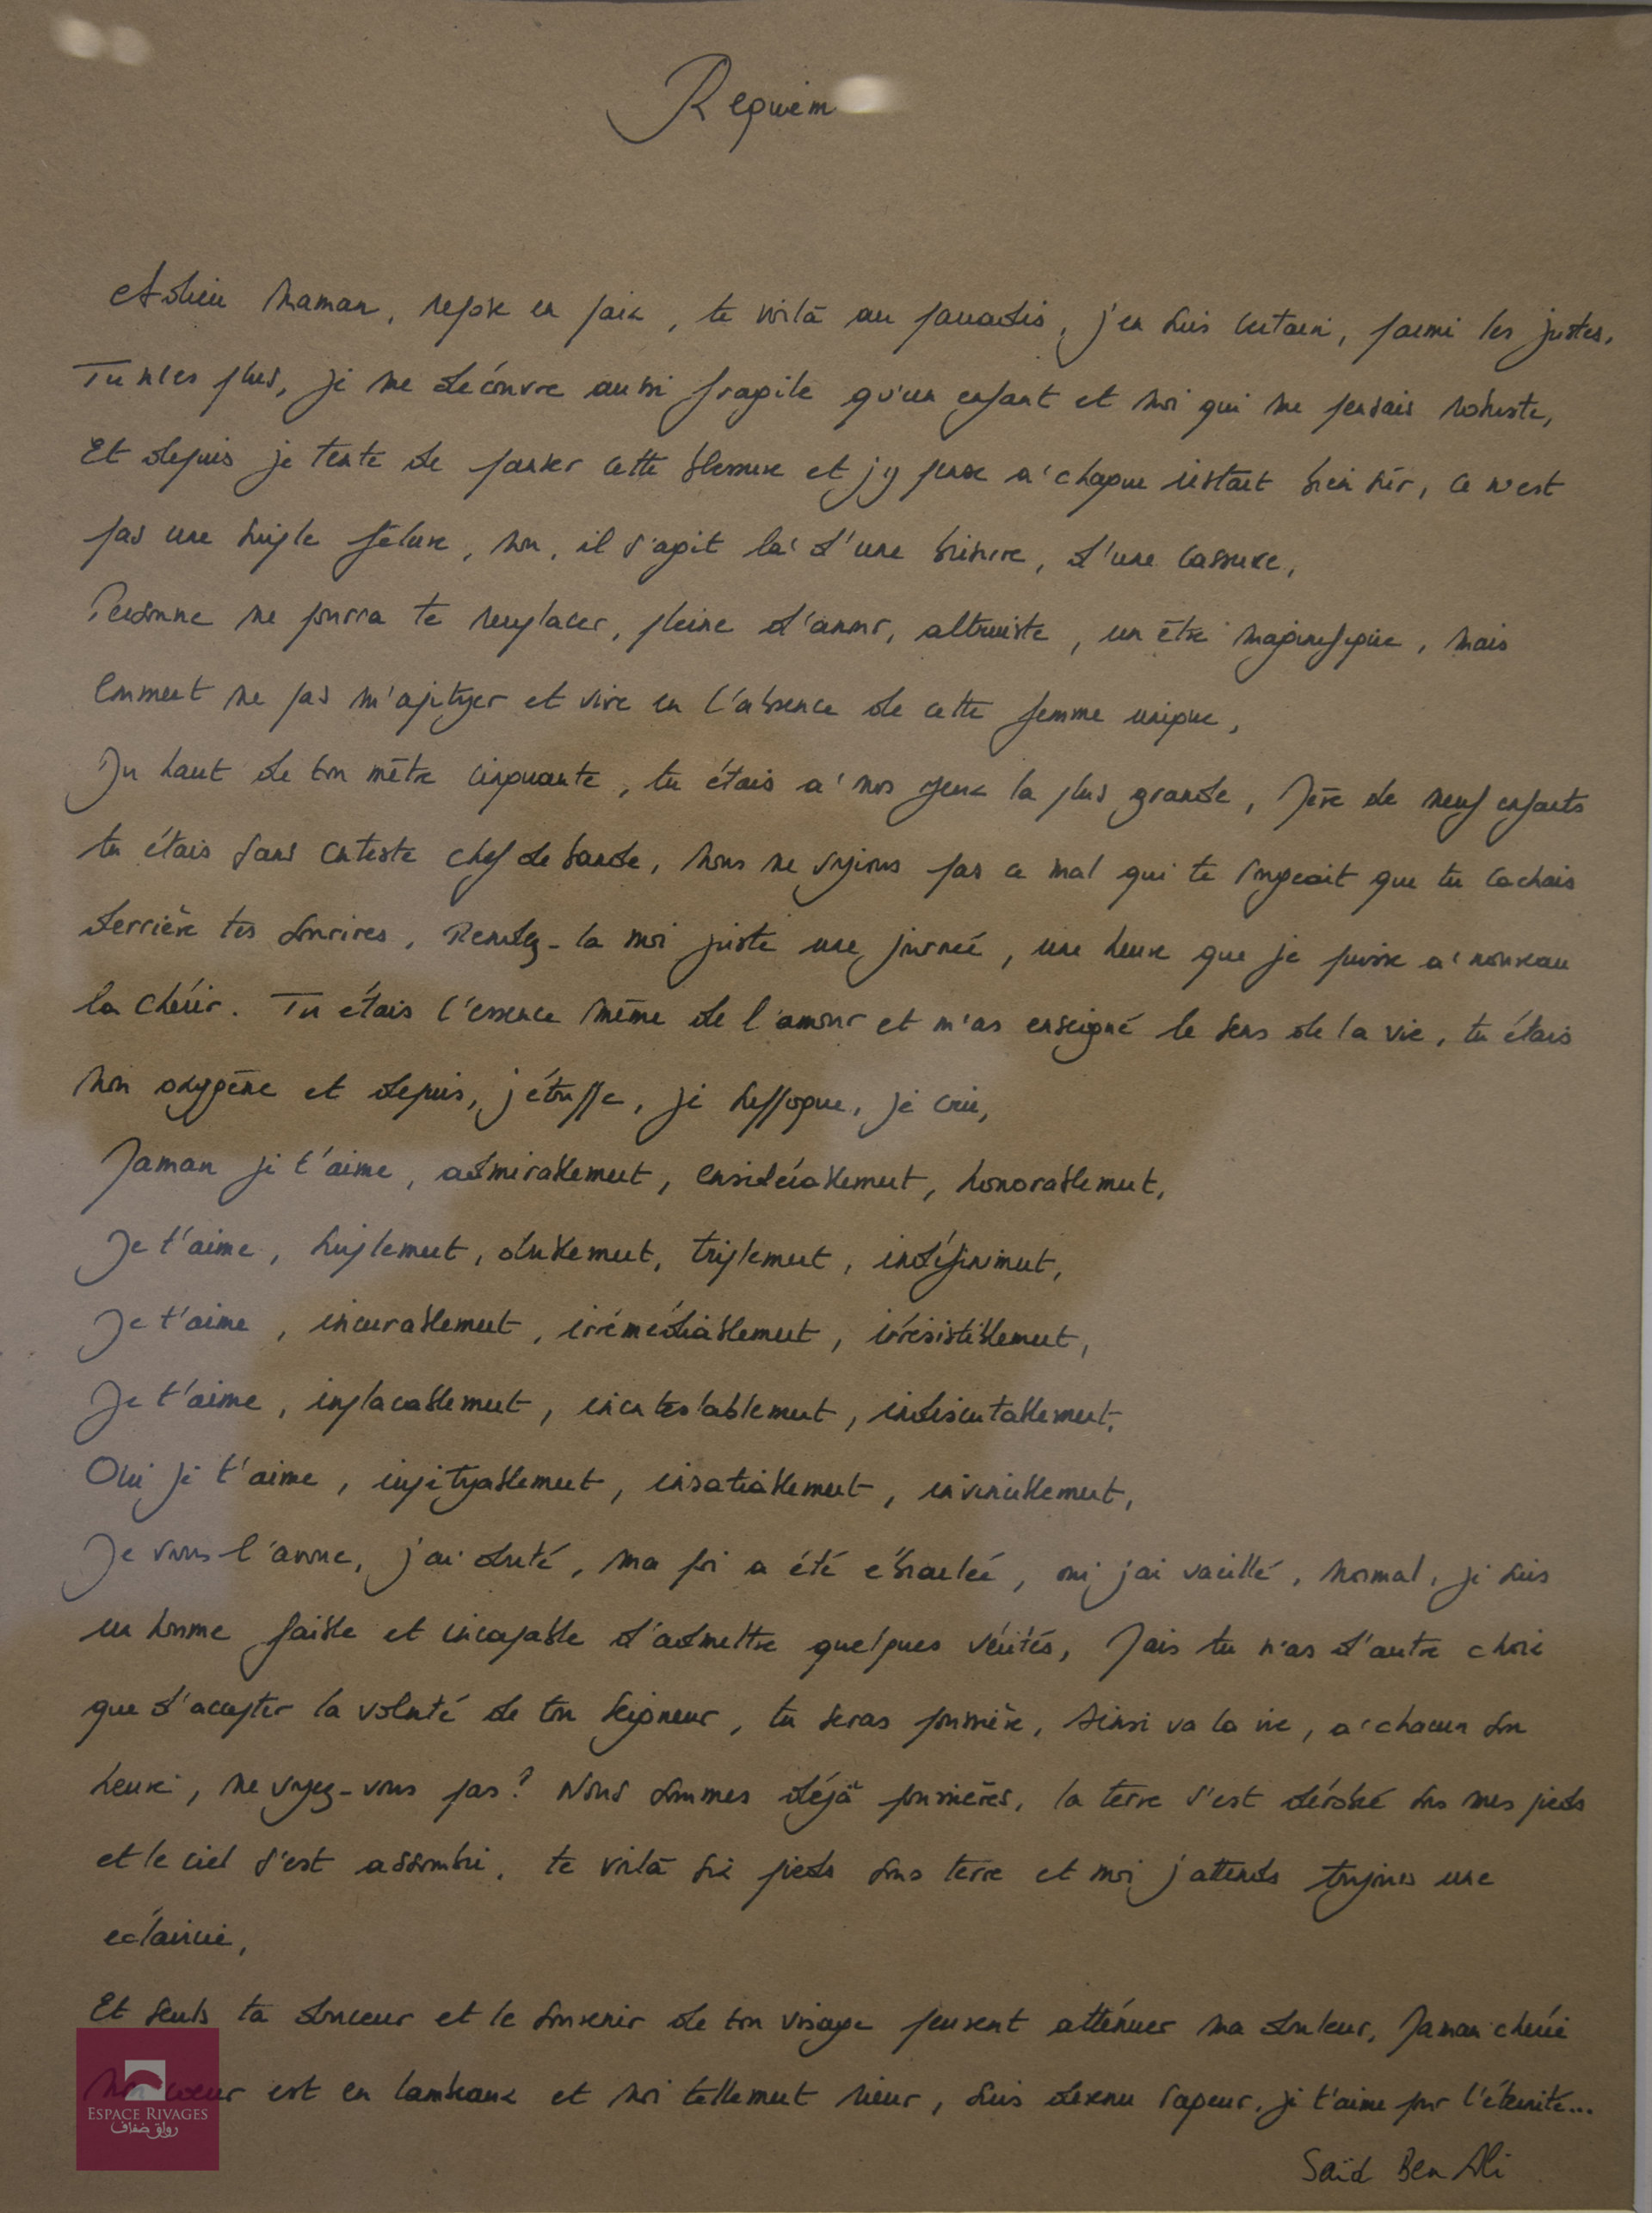 Requiem
Adieu Maman, repose en paix, te voilà au paradis, j'en suis certain, parmi les justes,
Tu n'es plus, je me découvre aussi fragile qu'un enfant et moi qui me pensais robuste,
Et depuis je tente de panser cette blessure et j'y pense à chaque instant bien sûr, ce n'est
pas une simple fêlure, non, il s'agit là d'une brisure, d'une cassure,
Personne ne pourra te remplacer, pleine d'amour, altruiste, un être magnifique, mais
comment ne pas m'apitoyer et vivre en l'absence de cette femme unique,
Du haut de ton mètre cinquante, tu étais à nos yeux la plus grande, Mère de neuf enfants
tu étais sans conteste chef de bande, nous ne voyions pas ce mal qui te rongeait que tu cachais
derrière tes sourires, Rendez-la moi juste une journée, une heure que je puisse à nouveau
la chérir. Tu étais l'essence même de l'amour et m'as enseigné le sens de la vie, tu étais
mon oxygène et depuis, j'étouffe, je suffoque, je crie,
Maman je t'aime, admirablement, considérablement, honorablement,
Je t'aime, simplement, doublement, triplement, indéfiniment,
Je t'aime, incurablement, irrémédiablement, irrésistiblement,
Je t'aime, implacablement, incontestablement, indiscutablement,
Oui je t'aime, impitoyablement, insatiablement, invinciblement,
Je vous l'avoue, j'ai douté, ma foi a été ébranlée, oui j'ai vacillé, normal, je suis
un homme faible et incapable d'admettre quelques vérités, Mais tu n'as d'autre choix
que d'accepter la volonté de ton Seigneur, tu seras poussière, Ainsi va la vie, à chacun son
heure, ne voyez-vous pas? Nous sommes déjà poussières, la terre s'est dérobé sous mes pieds
et le ciel s'est assombri, te voilà six pieds sous terre et moi j'attends toujours une
éclaircie,
Et seuls ta douceur et le souvenir de ton visage peuvent atténuer ma douleur, Maman chérie
Mon coeur est en lambeaux et moi tellement rieur, suis devenu rapeur, je t'aime pour l'éternité...
Saïd Ben Ali
ESPACE RIVAGES
رواق ضفاف